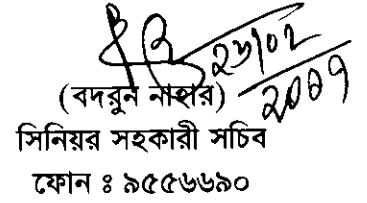 ২৬/০২
২০০৭
(বদরুন নাহার)
সিনিয়র সহকারী সচিব
ফোন ঃ ৯৫৫৬৬৯০